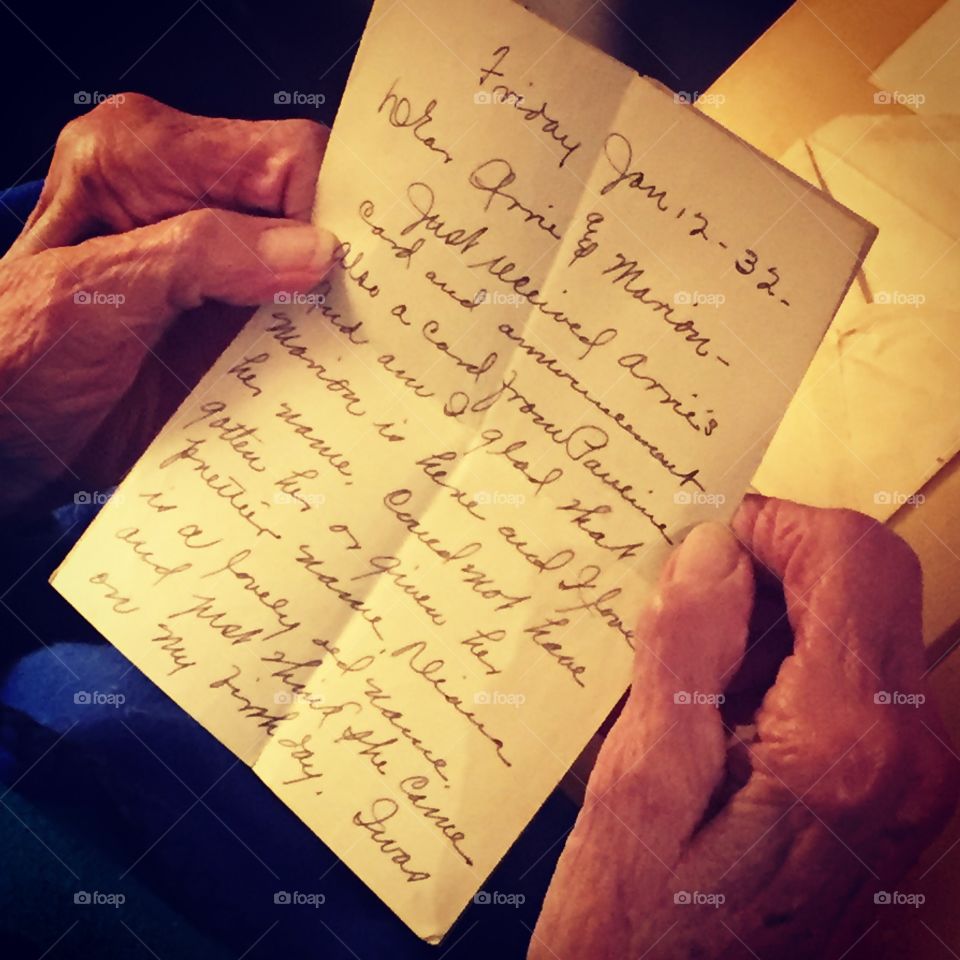 Friday Jan, 12 - 32 -
Dear Arrie & Marion -
Just received Arrie's
card and announcement
Also a card from Pauline
and am I glad that
Marion is here and I love
her name. Could not have
gotten her or given her
prettier name. Diana
is a lovely old name
and just think she came
on my birthday. I was
foap